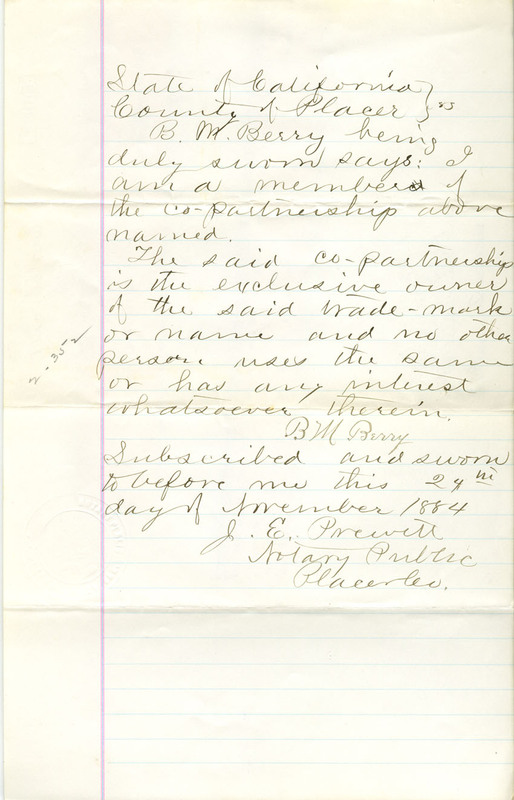 State of California }
County of Placer } ss
B. M. Berry being
duly sworn says: I
am a member of
the co-partnership above
named.
The said co-partnership
is the exclusive owner
of the said trade-mark
or name and no other
person uses the same
or has any interest
whatsoever therein.
B M Berry
Subscribed and sworn
to before me this 24th
day of November 1884
J. E. Prewett
Notary Public
Placer Co.